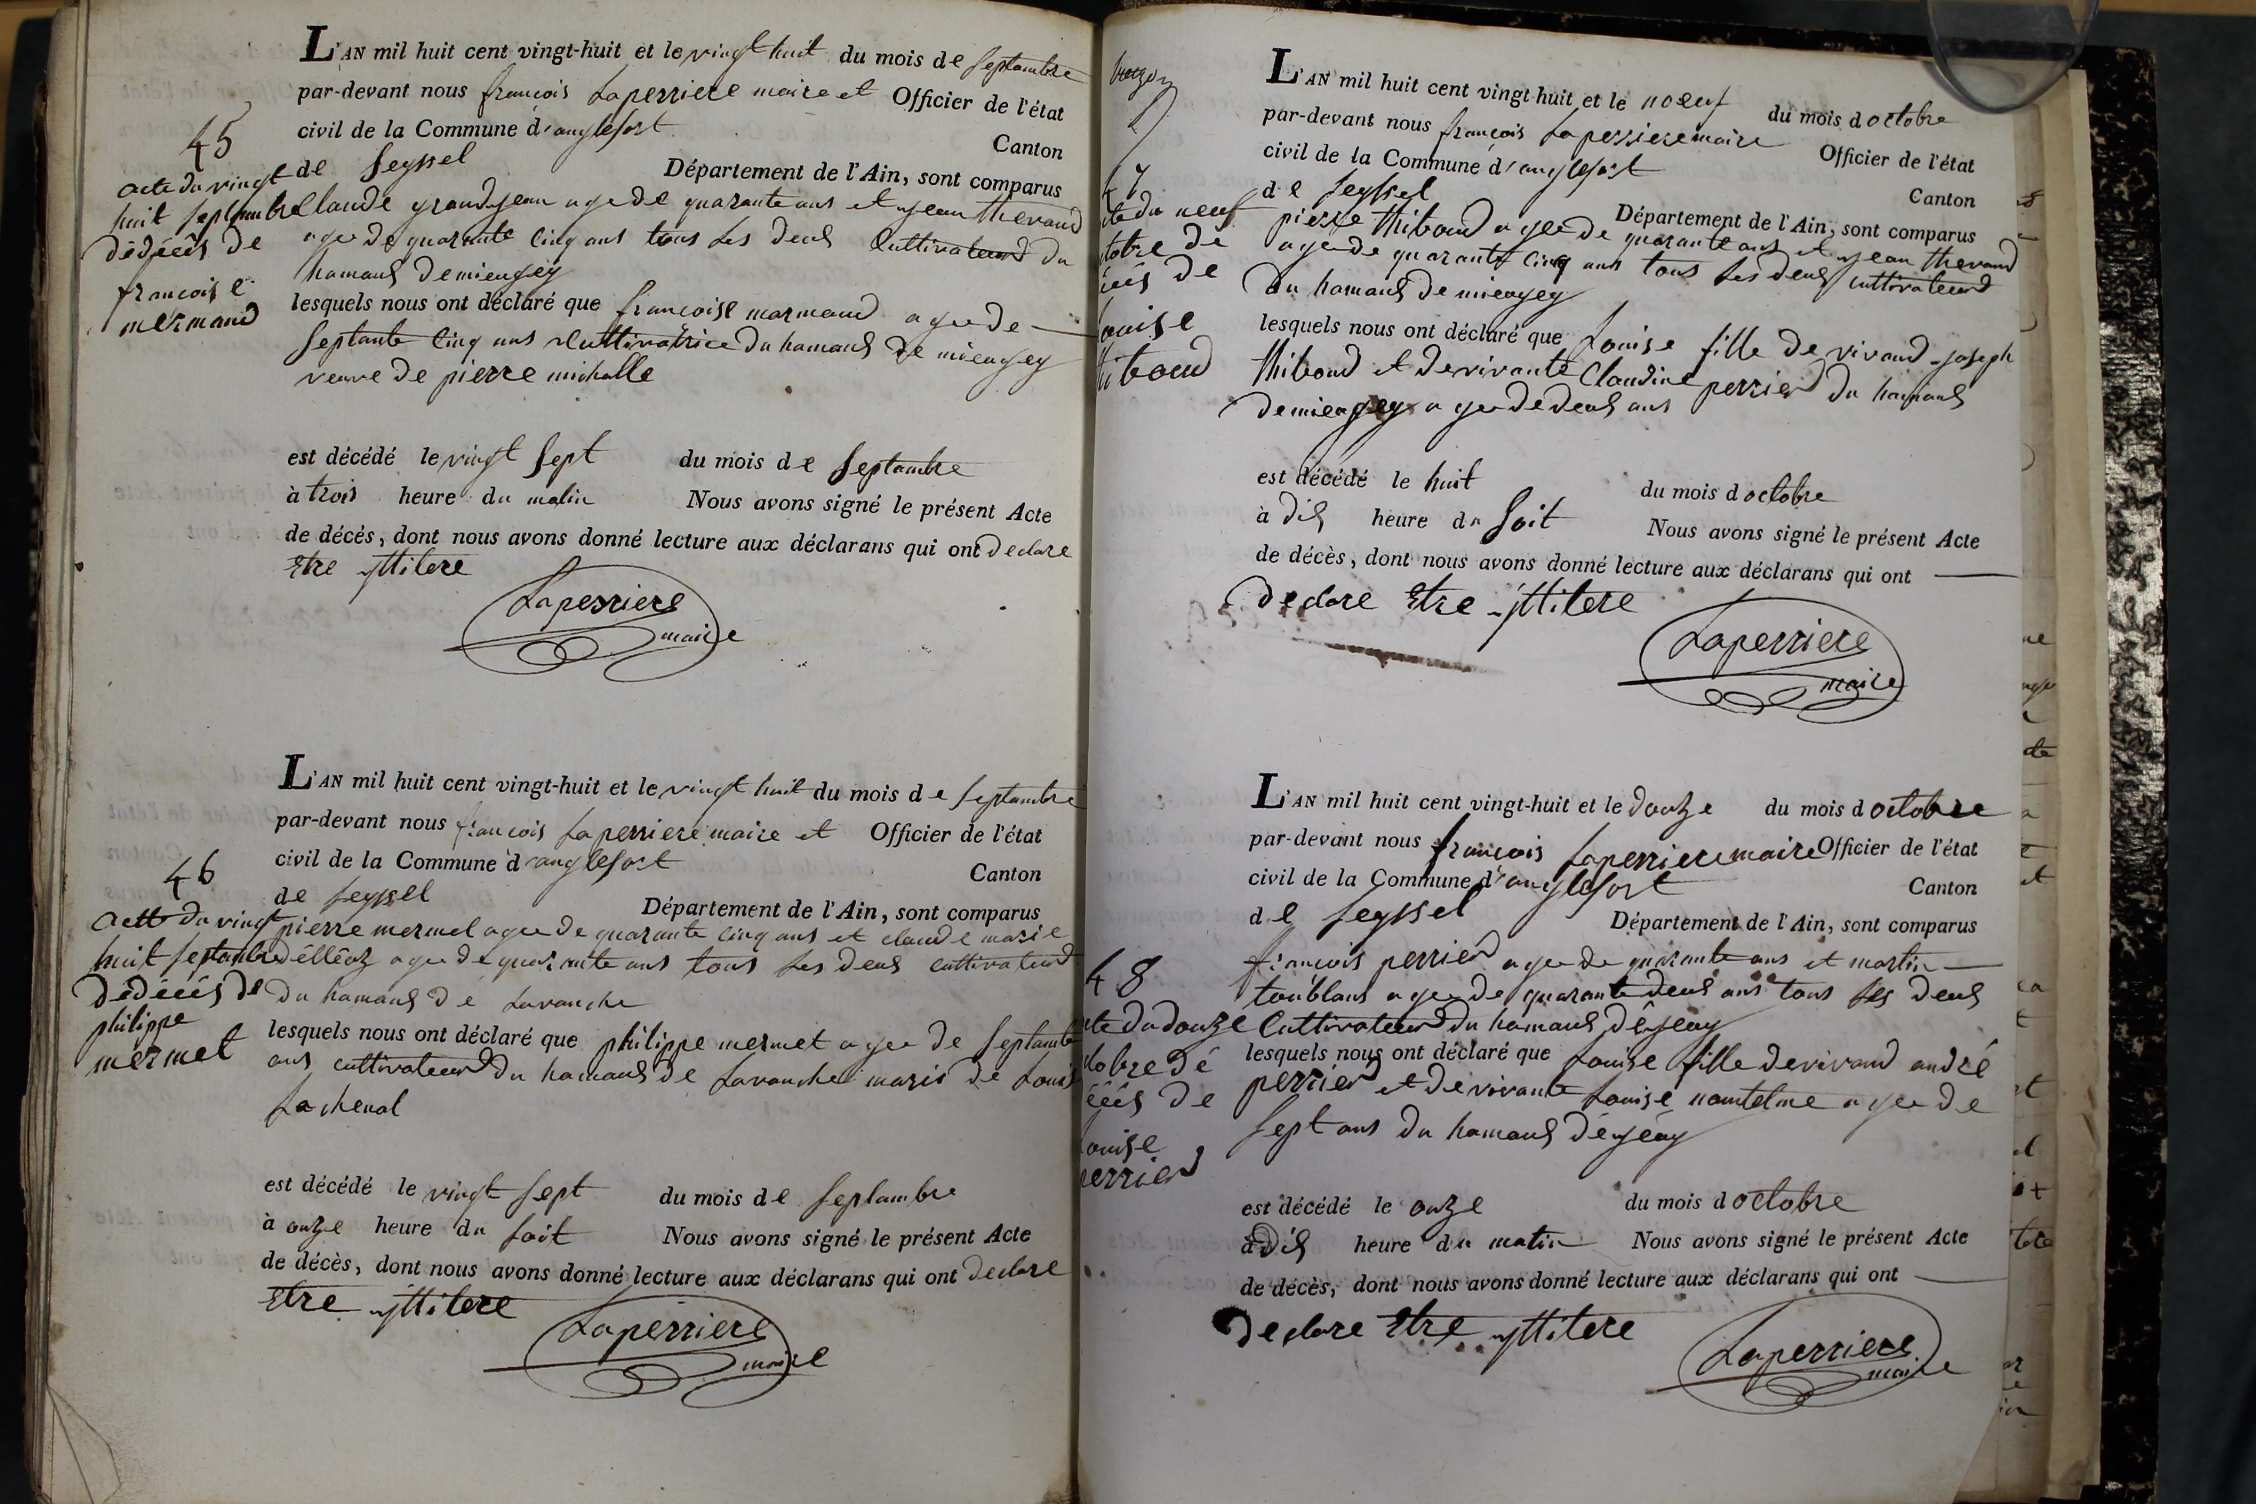 L'AN mil huit cent vingt-huit et le vingt huit du mois de septambre
par-devant nous françois Laperriere maire et Officier de l'état
civil de la Commune d'anglefort
Canton
de Seyssel
Département de l'Ain, sont comparus
Claude grandjean agee de quarante ans et jean thevand
agee de quarante cinq ans tous les deus Cultivateurs du
hamaus de miengey
lesquels nous ont déclaré que françoise marmand agee de
septante cinq ans Cultivatrice du hamaus de miengey
veuve de pierre michalle
est décédé le vingt sept du mois de septambre
à trois heure du matin Nous avons signé le présent Acte
de décès, dont nous avons donné lecture aux déclarans qui ont declare
Etre yttitere
Laperriere
maire
45
acte du vingt
huit septambre
dédécès de
françoise
mermand
L'AN mil huit cent vingt-huit et le vingt huit du mois de septambre
par-devant nous françois Laperriere maire et Officier de l'état
civil de la Commune d'anglefort
Canton
de Seyssel
Département de l'Ain, sont comparus
pierre mermet agee de quarante cinq ans et claude marie
délléaz agee de quarante ans tous les deus cultivateurs
du hamaus de Lavanche
lesquels nous ont déclaré que philippe mermet agee de septante
ans cultivateur du hamaus de Lavanche maris de Louise
Lachenal
est décédé le vingt sept du mois de septambre
à onze heure du soit Nous avons signé le présent Acte
de décès, dont nous avons donné lecture aux déclarans qui ont declare
Etre yttitere
Laperriere
maire
46
acte du vingt
huit septambre
dedécés de
philippe
mermet
L'AN mil huit cent vingt-huit et le noeuf du mois d octobre
par-devant nous françois Laperriere maire Officier de l'état
civil de la Commune d'anglefort
Canton
de Seyssel
Département de l'Ain, sont comparus
pierre thiboud agee de quarante ans et jean thevand
agee de quarante cinq ans tous les deus cultivateurs
du hamaus de miengey
lesquels nous ont déclaré que Louise fille de vivand joseph
thiboud et de vivante Claudine perrier du hamaus
de miengey agee de deus ans
est décédé le huit du mois d octobre
à dis heure du soit Nous avons signé le présent Acte
de décès, dont nous avons donné lecture aux déclarans qui ont
declare Etre yttitere
Laperriere
maire
47
te du neuf
tobre de
cés de
ouise
iboud
L'AN mil huit cent vingt-huit et le douze du mois d octobre
par-devant nous françois Laperriere maire Officier de l'état
civil de la Commune d'anglefort
Canton
de Seyssel
Département de l'Ain, sont comparus
françois perrier agee de quarante ans et martin
toublans agee de quarante deus ans tous les deus
Cultivateurs du hamaus
lesquels nous ont déclaré que Louise fille de vivand andré
perrier et de vivante Louise agee de
sept ans du hamaus
est décédé le onze du mois d octobre
à dis heure du matin Nous avons signé le présent Acte
de décès, dont nous avons donné lecture aux déclarans qui ont
declare Etre yttitere
Laperriere
maire
48
te du douze
tobre dé
cés de
ouise
perrier